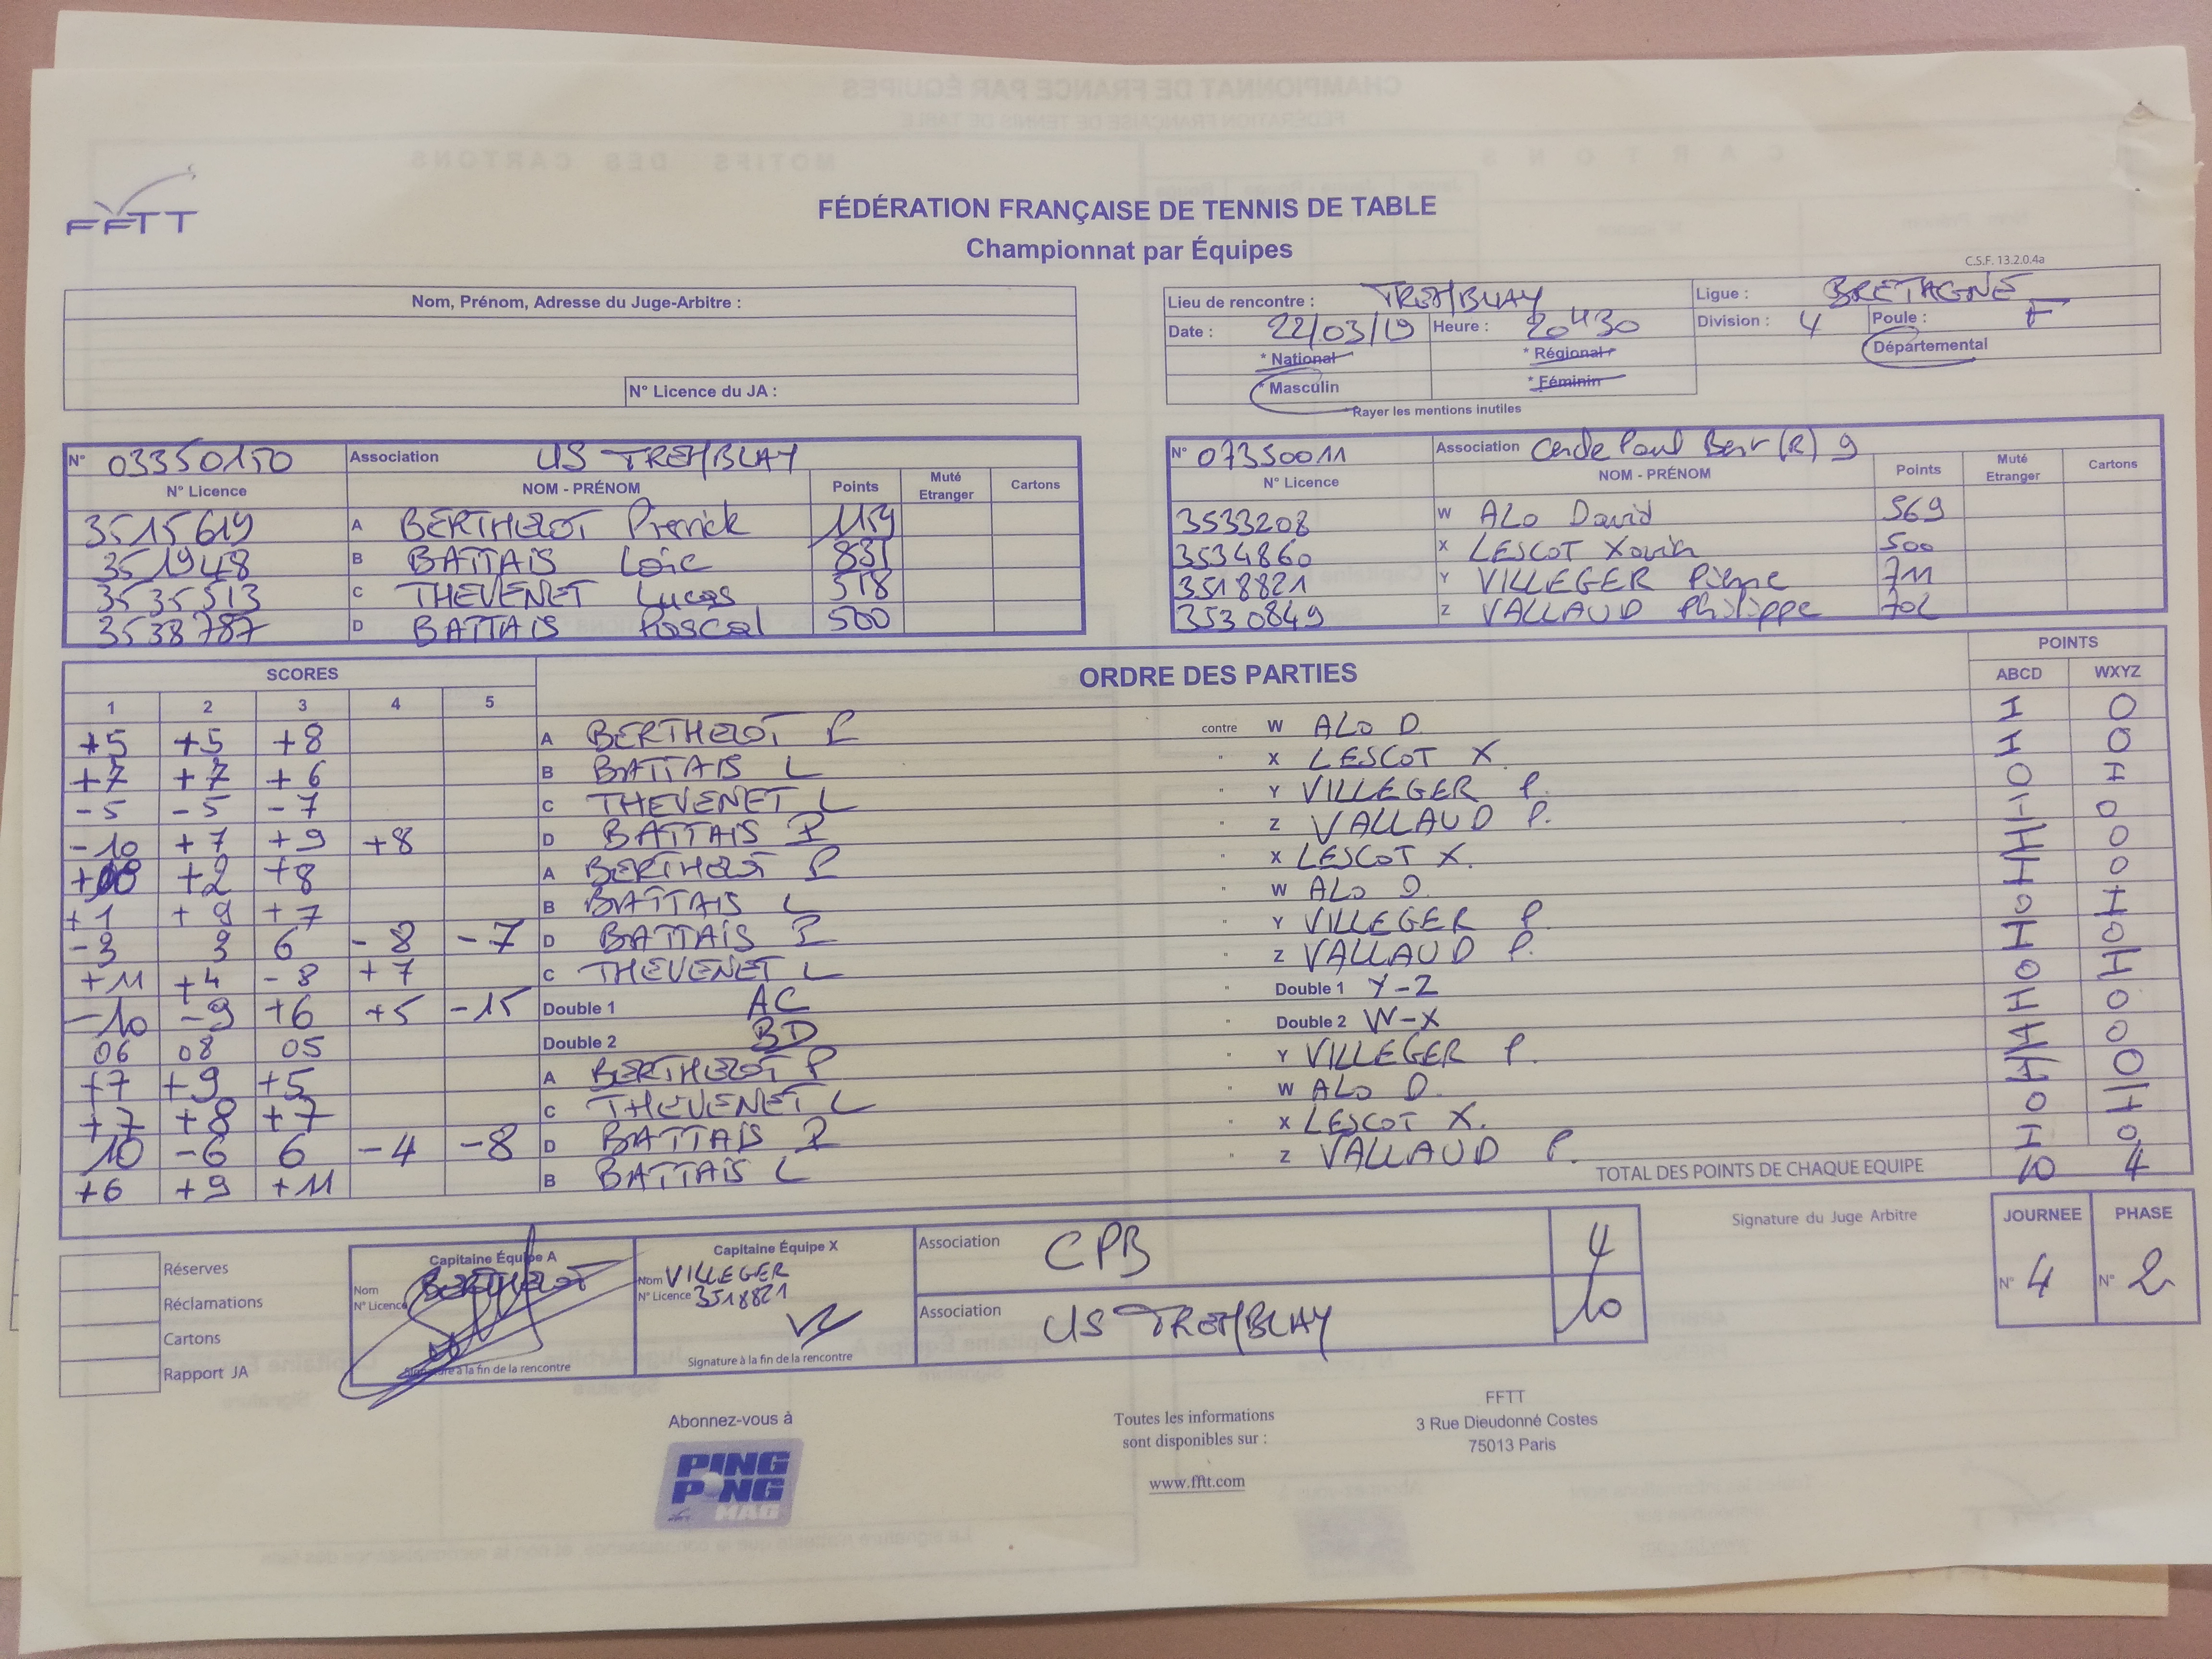 FFTT
FÉDÉRATION FRANÇAISE DE TENNIS DE TABLE
Championnat par Équipes
C.S.F. 13.2.0.4a
Nom, Prénom, Adresse du Juge-Arbitre :
N° Licence du JA :
Lieu de rencontre : TREMBLAY Ligue : BRETAGNE
Date : 22/03/19 Heure : 20H30 Division : 4 Poule : F
* National * Régional * Départemental
* Masculin * Féminin
*Rayer les mentions inutiles
N° 03350150 Association US TREMBLAY
N° Licence NOM - PRÉNOM Points Muté Etranger Cartons
3515619 A BERTHELOT Pierrick 1159
351948 B BATTAIS Loïc 831
3535513 C THEVENET Lucas 518
3538787 D BATTAIS Pascal 500
N° 07350011 Association Cercle Paul Bert (R) 9
N° Licence NOM - PRÉNOM Points Muté Etranger Cartons
3533208 W ALO David 569
3534860 X LESCOT Xavier 500
3518821 Y VILLEGER Pierre 711
3530849 Z VALLAUD Philippe 702
SCORES ORDRE DES PARTIES POINTS
1 2 3 4 5 ABCD WXYZ
+5 +5 +8 A BERTHELOT P contre W ALO D. 1 0
+7 +7 +6 B BATTAIS L " X LESCOT X. 1 0
-5 -5 -7 C THEVENET L " Y VILLEGER P. 0 1
-10 +7 +9 +8 D BATTAIS P " Z VALLAUD P. 1 0
+2 +8 A BERTHELOT P " X LESCOT X. 1 0
+1 +9 +7 B BATTAIS L " W ALO D. 1 0
-3 3 6 -8 -7 D BATTAIS P " Y VILLEGER P. 0 1
+11 +4 -8 +7 C THEVENET L " Z VALLAUD P. 1 0
-10 -9 +6 +5 -15 Double 1 AC " Double 1 Y-Z 0 1
06 08 05 Double 2 BD " Double 2 W-X 1 0
+7 +9 +5 A BERTHELOT P " Y VILLEGER P. 1 0
+7 +8 +7 C THEVENET L " W ALO D. 1 0
10 -6 6 -4 -8 D BATTAIS P " X LESCOT X. 0 1
+6 +9 +11 B BATTAIS L " Z VALLAUD P. 1 0
TOTAL DES POINTS DE CHAQUE EQUIPE 10 4
Réserves
Réclamations
Cartons
Rapport JA
Capitaine Équipe A
Nom BERTHELOT
N° Licence
Signature à la fin de la rencontre
Capitaine Équipe X
Nom VILLEGER
N° Licence 3518821
Signature à la fin de la rencontre
Association CPB 4
Association US TREMBLAY 10
Signature du Juge Arbitre
JOURNEE PHASE
N° 4 N° 2
Abonnez-vous à
PING
PONG
MAG
Toutes les informations
sont disponibles sur :
www.fftt.com
FFTT
3 Rue Dieudonné Costes
75013 Paris